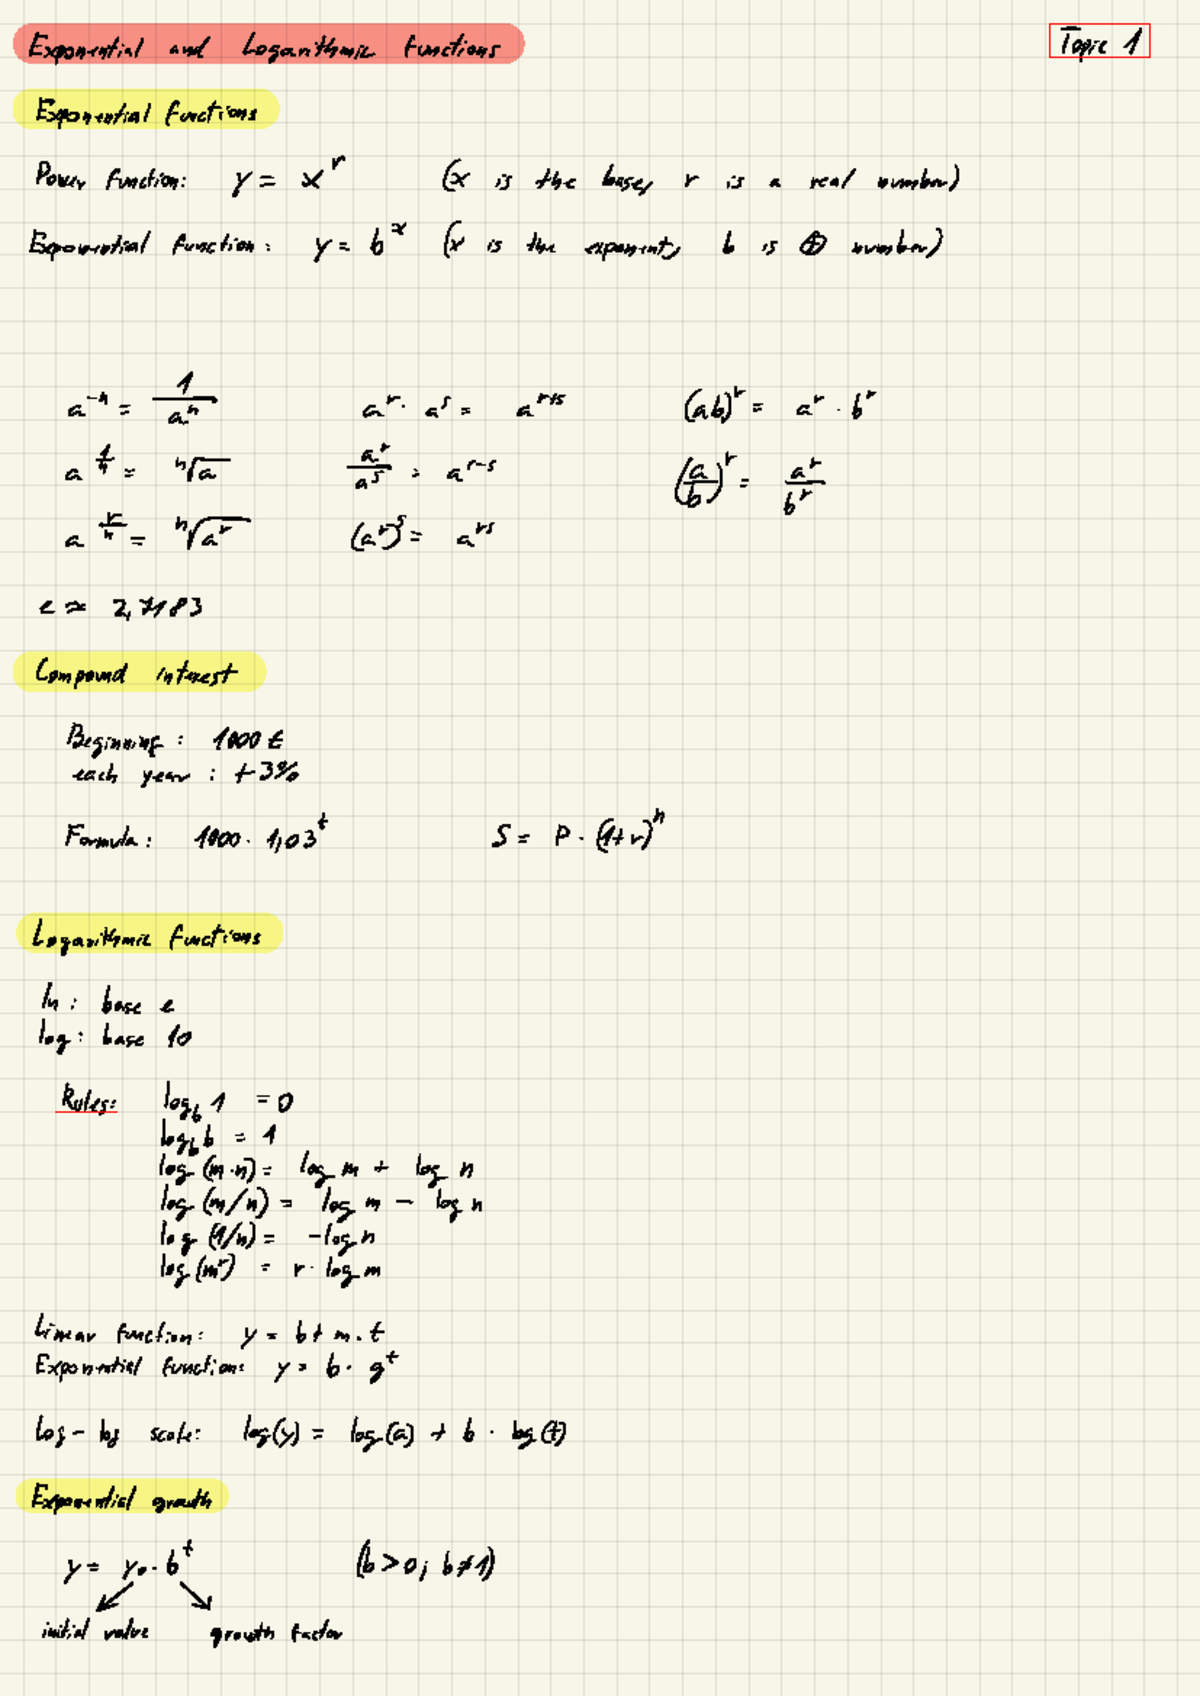 Exponential and Logarithmic functions
Topic 1
Exponential functions
Power function: y = x^r (x is the base, r is a real number)
Exponential function: y = b^x (x is the exponent, b is ⊕ number)
a^-n = 1/a^n a^r · a^s = a^r+s (ab)^r = a^r · b^r
a^1/n = ⁿ√a a^r/a^s = a^r-s (a/b)^r = a^r/b^r
a^r/n = ⁿ√a^r (a^r)^s = a^rs
e ≈ 2,7183
Compound interest
Beginning: 1000 €
each year: +3%
Formula: 1000 · 1,03^t S = P · (1+r)^n
Logarithmic functions
ln: base e
log: base 10
Rules: log_b 1 = 0
log_b b = 1
log (m·n) = log m + log n
log (m/n) = log m - log n
log (1/n) = -log n
log (m^r) = r · log m
Linear function: y = b + m · t
Exponential function: y = b · g^t
Log-log scale: log(y) = log(a) + b · log(t)
Exponential growth
y = y₀ · b^t (b>0; b≠1)
initial value growth factor